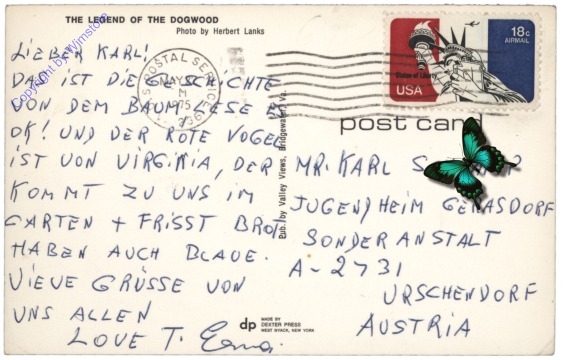 THE LEGEND OF THE DOGWOOD
Photo by Herbert Lanks
LIEBER KARL!
DAS IST DIE GESCHICHTE
VON DEM BAUM LESE E
OK! UND DER ROTE VOGEL
IST VON VIRGINIA, DER
KOMMT ZU UNS IM
GARTEN + FRISST BROT
HABEN AUCH BLAUE.
VIELE GRÜSSE VON
UNS ALLEN
LOVE T.
Copyright by Wimstone
POSTAL SERVICE
MAY
M
1975
18c
AIRMAIL
Statue of Liberty
USA
post card
Pub. by Valley Views, Bridgewater, Va.
MR. KARL
JUGENDHEIM GERASDORF
SONDERANSTALT
A-2731
URSCHENDORF
AUSTRIA
dp
MADE BY
DEXTER PRESS
WEST NYACK, NEW YORK